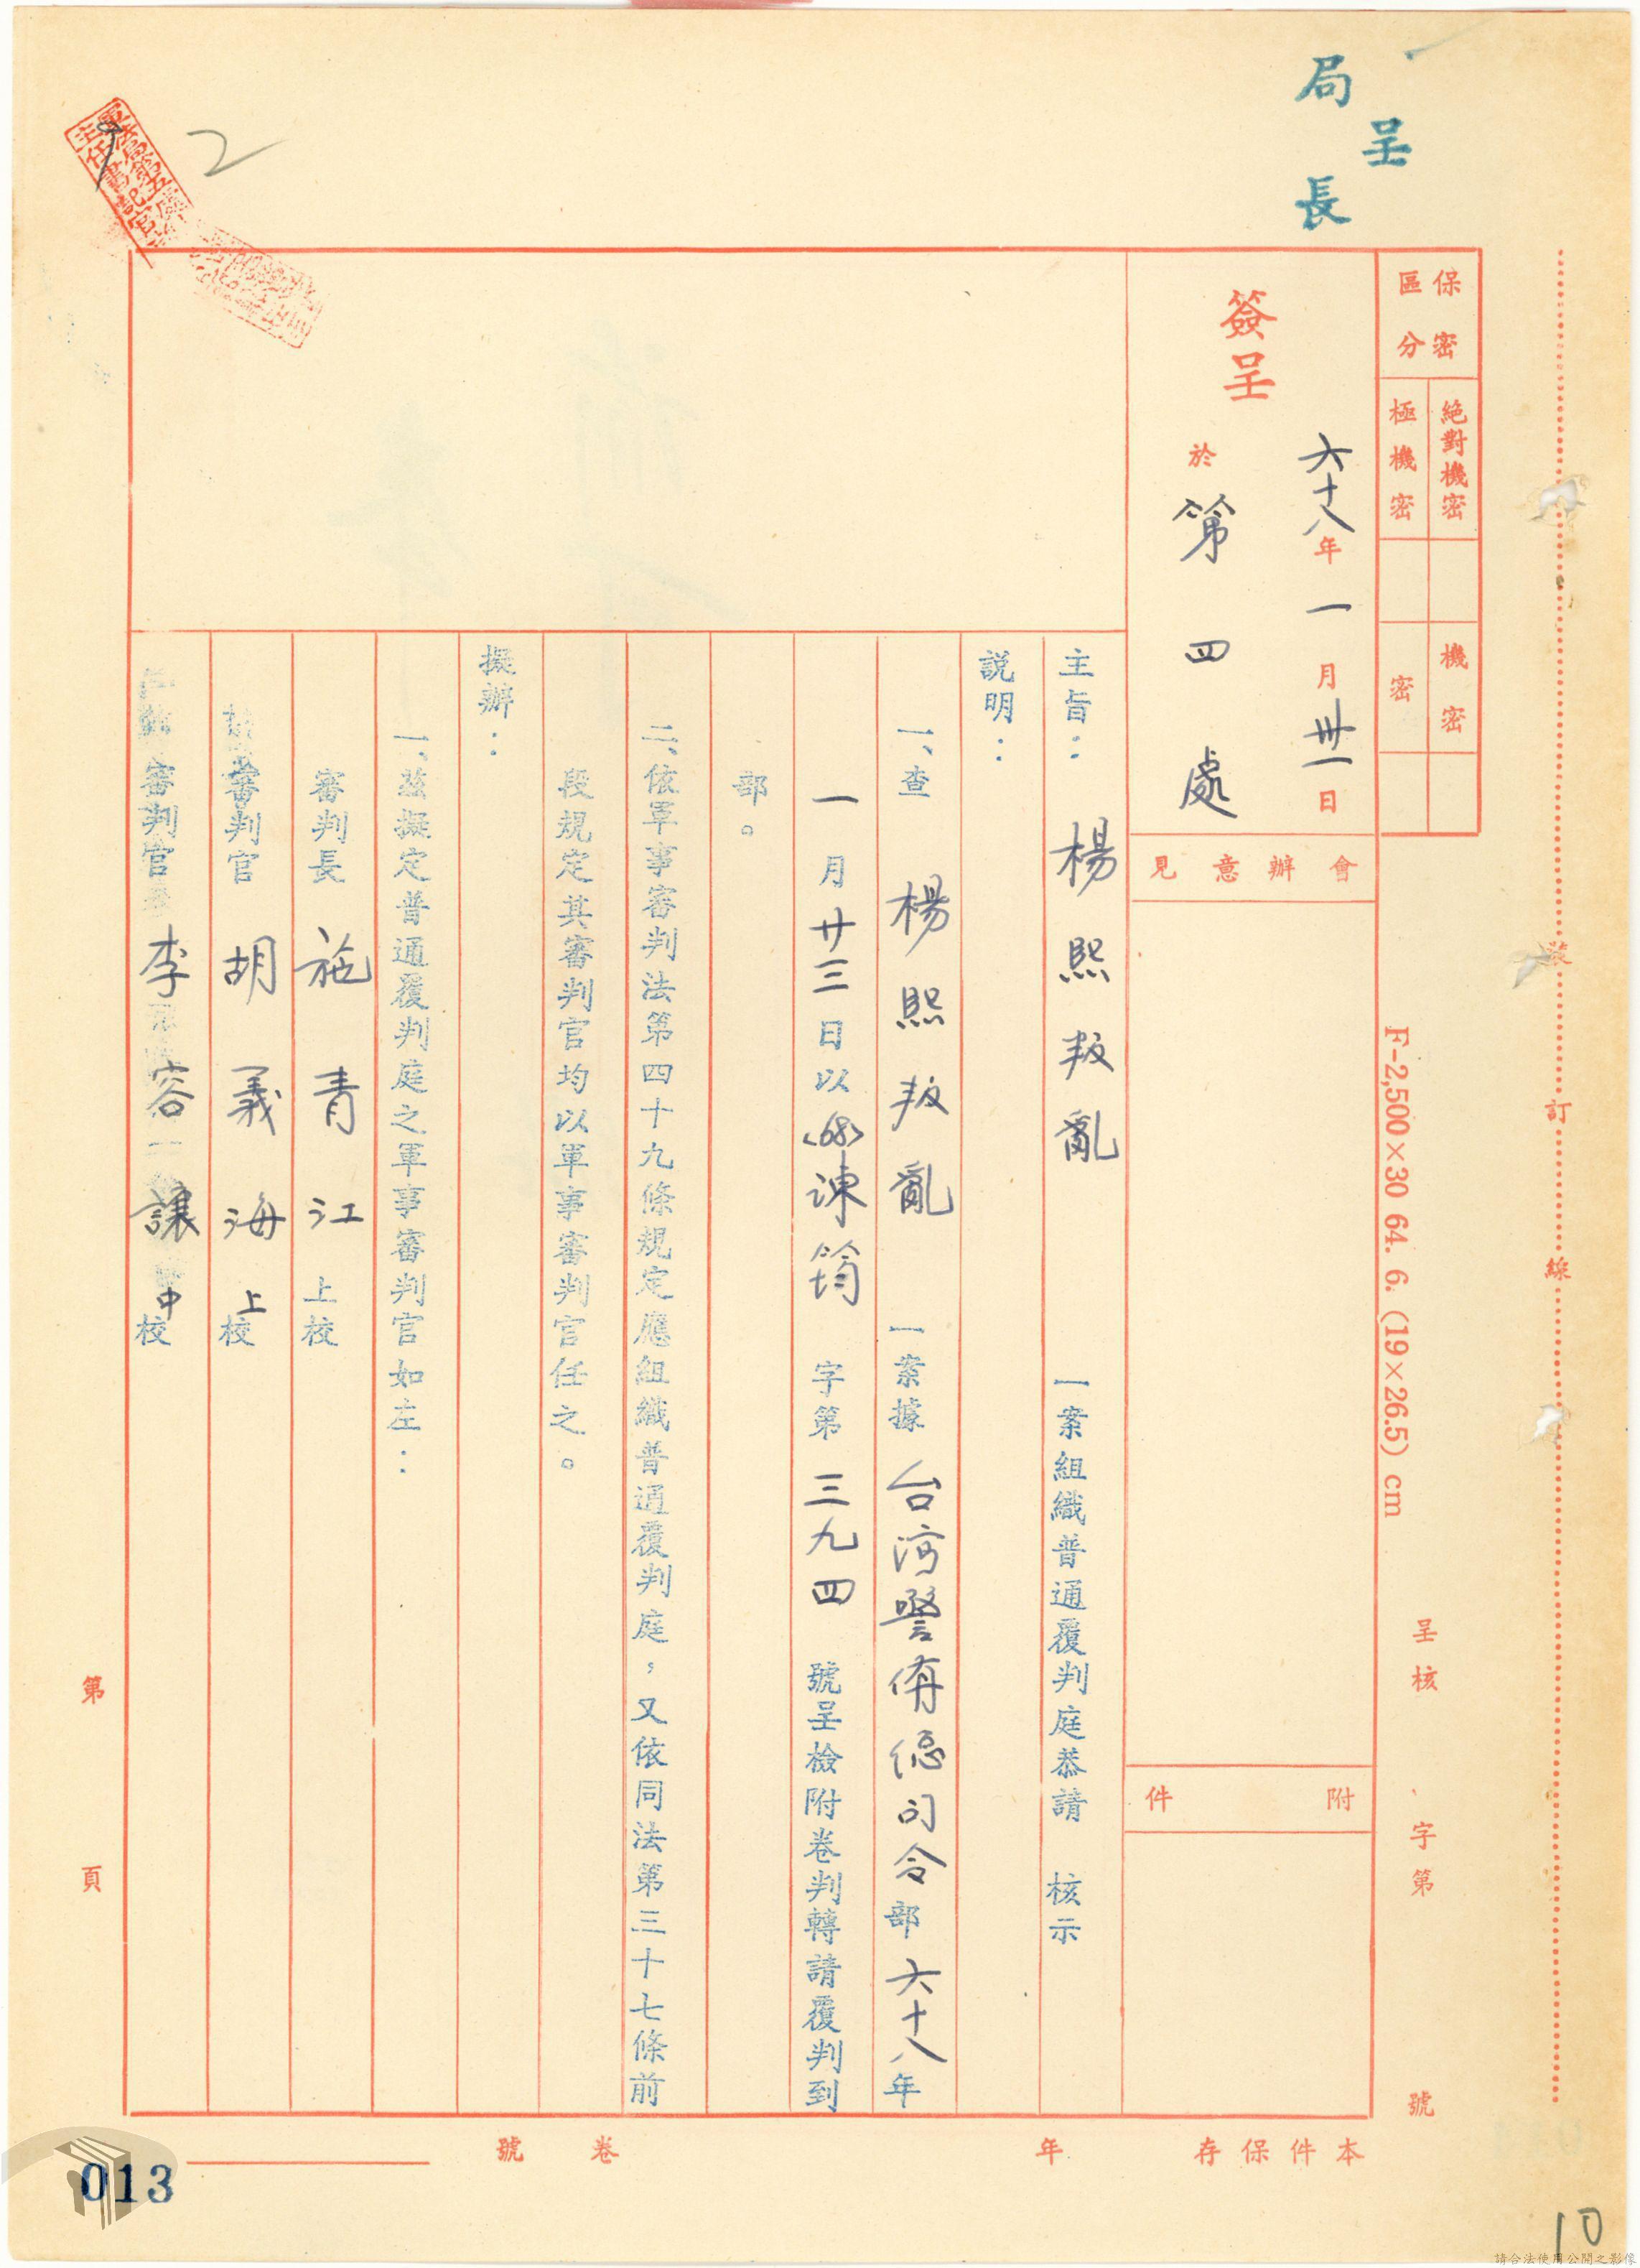 呈
局長
保密區分
絕對機密
極機密
機密
密
簽呈
六十八年一月卅一日
於第四處
會辦意見
附件
F-2,500×30 64. 6. (19×26.5) cm
呈核
字第
號
裝
訂
線
主旨：楊熙叛亂一案組織普通覆判庭恭請 核示
說明：
一、查楊熙叛亂一案據台灣警備總司令部六十八年
一月廿三日以(68)諫筠字第三九四號呈檢附卷判轉請覆判到
部。
二、依軍事審判法第四十九條規定應組織普通覆判庭，又依同法第三十七條前
段規定其審判官均以軍事審判官任之。
擬辦：
一、茲擬定普通覆判庭之軍事審判官如左：
審判長 施青江 上校
審判官 胡義海 上校
審判官 李容讓 中校
第 頁
本件保存 年
卷 號
2
013
10
請合法使用公開之影像